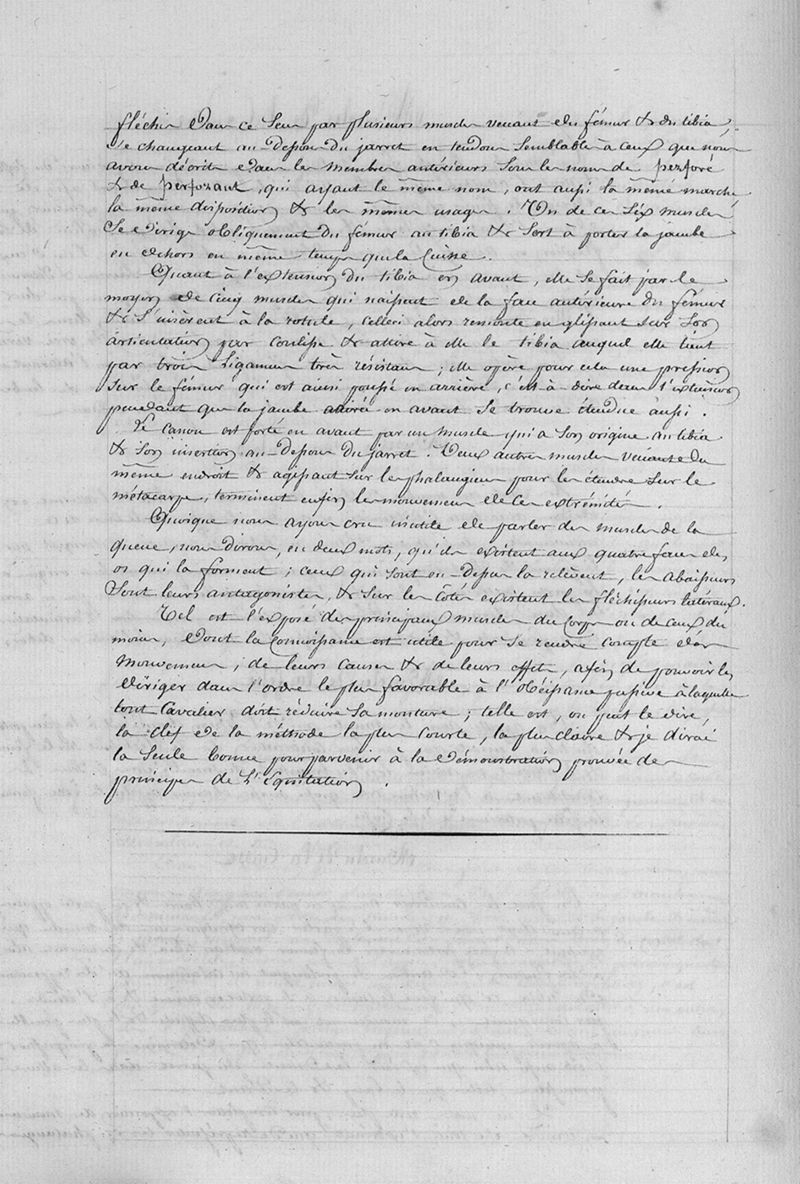 fléchir dans ce sens par plusieurs muscles venant du fémur & du tibia,
se changeant au-dessous du jarret en tendons semblables à ceux que nous
avons décrits dans les membres antérieurs sous le nom de perforé
& de perforant, qui ayant le même nom, ont aussi la même marche
la même disposition & les mêmes usages. Un de ces six muscles
se dirige obliquement du fémur au tibia & sert à porter la jambe
en dehors en même temps que la Cuisse.
Quant à l'extension du tibia en avant, elle se fait par le
moyen de cinq muscles qui naissent de la face antérieure du fémur
& s'insèrent à la rotule, celle ci alors remonte en glissant sur son
articulation par coulisse & attire à elle le tibia auquel elle tient
par trois ligamens très résistans; elle opère pour cela une pression
sur le fémur qui est ainsi poussé en arrière, c'est-à-dire dans l'extension
pendant que la jambe attirée en avant se trouve étendue aussi.
Le Canon est porté en avant par un muscle qui a son origine au tibia
& son insertion au-dessous du jarret. Deux autres muscles venants du
même endroit & agissant sur les phalangiens pour les étendre sur le
métacarpe, terminent enfin les mouvemens de ces extrémités.
Quoique nous ayons cru inutile de parler des muscles de la
queue, nous dirons, en deux mots, qu'ils existent aux quatre faces des
os qui la forment; ceux qui sont en-dessus la relèvent, les abaisseurs
sont leurs antagonistes, & sur les cotés existent les fléchisseurs latéraux.
Tel est l'exposé des principaux muscles du corps ou de ceux du
moins, dont la connoissance est utile pour se rendre compte des
mouvemens, de leurs causes & de leurs effets, afin de pouvoir les
diriger dans l'ordre le plus favorable à l'obéissance passive à laquelle
tout Cavalier doit réduire sa monture; telle est, on peut le dire,
la clef de la méthode la plus courte, la plus claire & je dirai
la seule bonne pour parvenir à la démonstration prouvée des
principes de l'Equitation.